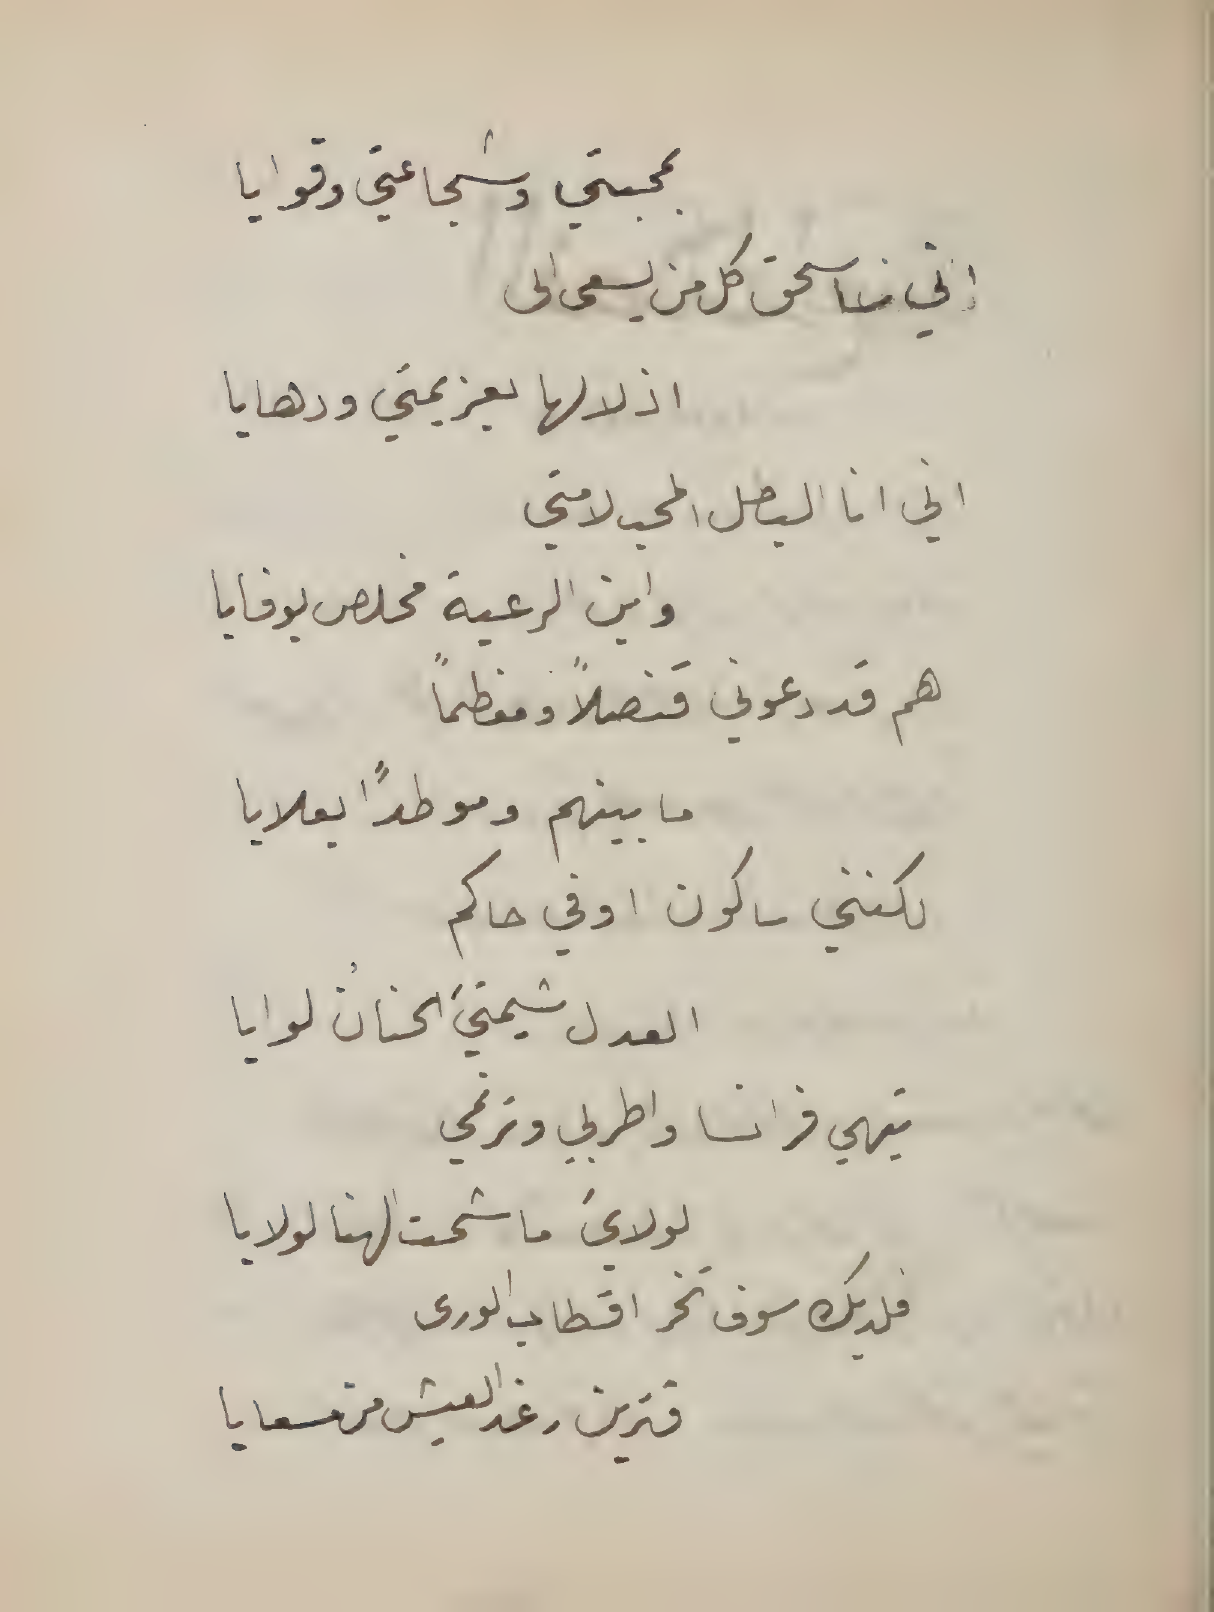 بمحبتي وشجاعتي وقوايا
اني سأسحق كل من يسعى الى
اذلالها بعزيمتي ودهايا
اني انا البطل المحب لامتي
وابن الرعية مخلص بوفايا
هم قد دعوني قنصلاً ومعظماً
ما بينهم وموطداً بعلايا
لكنني ساكون اوفي حاكم
العدل شيمتي الحنانُ لوايا
تيهي فرانسا واطربي وترنمي
لولايَ ما شمت الهنا لولايا
فلديك سوف تخر اقطاب الورى
فترين رغد العيش من مسعايا